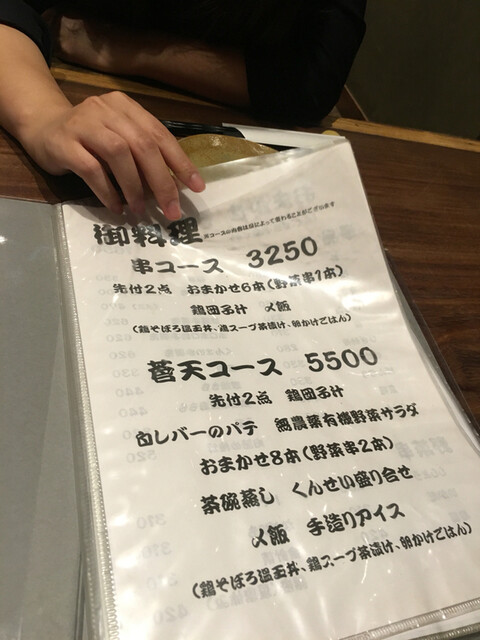 御料理 ※コースの内容は日によって変わることがございます
串コース 3250
先付2点 おまかせ6本(野菜串1本)
鶏団子汁 〆飯
(鶏そぼろ温玉丼、鶏スープ茶漬け、卵かけごはん)
蒼天コース 5500
先付2点 鶏団子汁
白レバーのパテ 無農薬有機野菜サラダ
おまかせ8本(野菜串2本)
茶碗蒸し くんせい盛り合せ
〆飯 手造りアイス
(鶏そぼろ温玉丼、鶏スープ茶漬け、卵かけごはん)